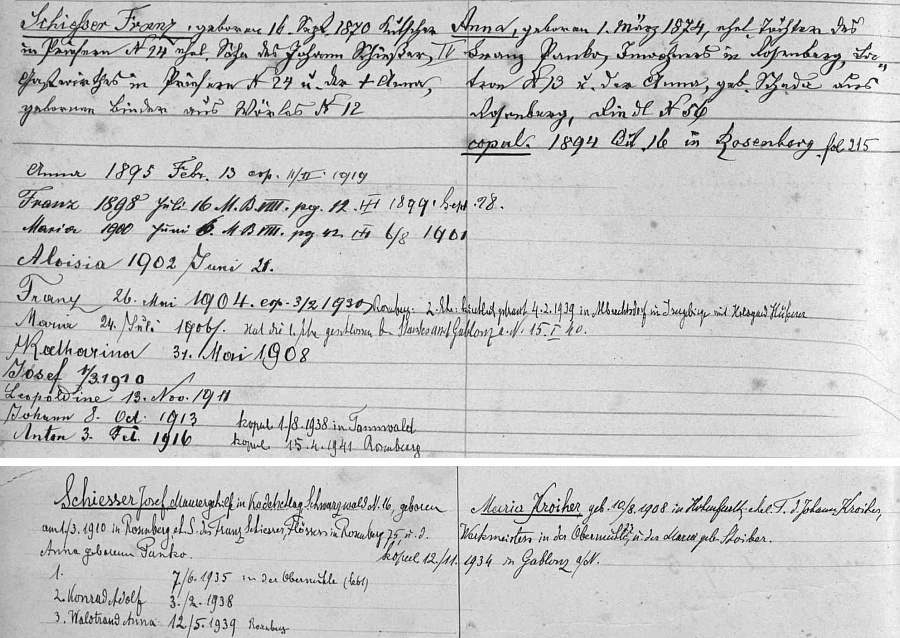 Schießer Franz, geboren 16. Sept. 1870 Kutscher
in Priesern N 24 ehel. Sohn des Johann Schießer,
Gastwirthes in Priesern N 24 u. der + Anna,
geborenen Binder aus Wörles N 12
Anna, geboren 1. März 1874, ehel. Tochter des
Franz Panko, Inwohners in Rosenberg,
N 13 u. der Anna, geb. Schada aus
Rosenberg, N 56
copul. 1894 Okt. 16 in Rosenberg. fol 215
Anna 1895 Febr. 13 cop. 11/II 1919
Franz 1898 Juli 16 M. B. VIII. pag. 12. 1899 Sept. 28.
Maria 1900 Juni 6. M B VIII. pag 42. 6/8 1901
Aloisia 1902 Juni 21.
Franz 26. Mai 1904. cop. 3/2 1930 Rosenberg. 2. Ehe: getraut 4.2.1939 in Albrechtsdorf im Isergebirge mit
Maria 24. Juli 1906. Hat die 1. Ehe geschlossen b. Standesamt Gablonz a. N. 15. I 40.
Katharina 31. Mai 1908
Josef 1/3 1910
Leopoldine 13. Nov. 1911
Johann 8. Oct. 1913 kopul 1./8. 1938 in Tannwald
Anton 3. Feb. 1916 kopul 15.4.1941 Rosenberg
Schiesser Josef, Maurergehilf in Kodetschlag Schwarzwald N. 16, geboren
am 1/3. 1910 in Rosenberg ehel. S. des Franz Schiesser, Flössers in Rosenberg 75, u. d.
Anna geborenen Panko. kopul 12./11.
1. 7./6. 1935 in der Obermühle
2. Konrad Adolf 3./2. 1938
3. Waltraud Anna 12/5. 1939 Rosenberg
Maria Kroiher geb. 10/8. 1908 in Hohenfurth ehel. T. d. Johann Kroiher,
Werkmeisters in der Obermühle, u. der Maria geb. Stoiber.
1934 in Gablonz a/N.